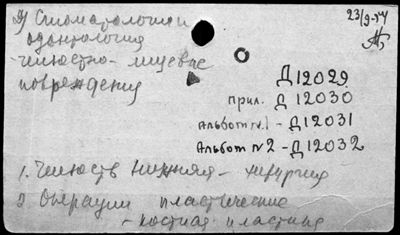 Стоматология и
одонтология
- челюстно-лицевые
повреждения
23/9-54
Д 12029
прил. Д 12030
Альбом №1 - Д 12031
Альбом №2 - Д 12032
1. Челюсть нижняя - хирургия
2. Операции пластические
- костная пластика